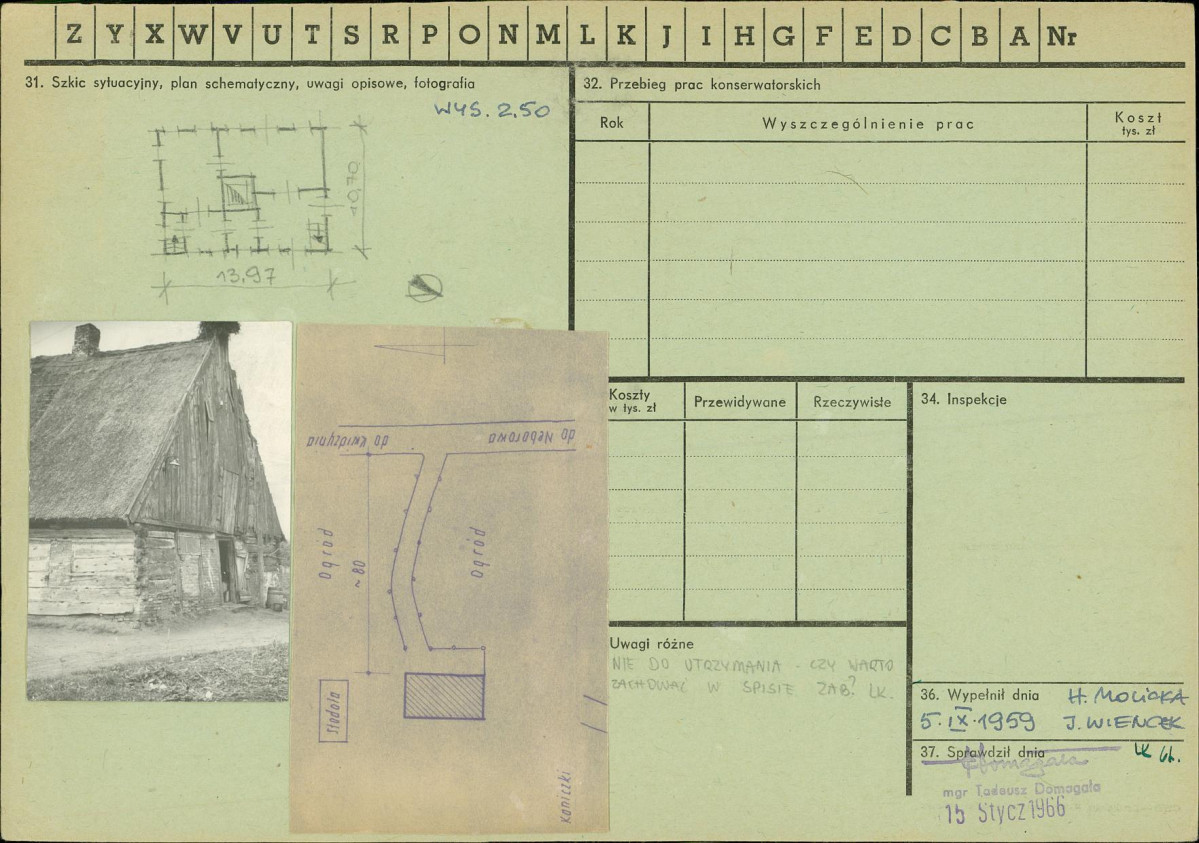 Z Y X W V U T S R P O N M L K J I H G F E D C B A Nr
31. Szkic sytuacyjny, plan schematyczny, uwagi opisowe, fotografia
WYS. 2.50
10,70
13,97
do Kwidzynia
do Neborowa
Ogród
~80
Ogród
Stodoła
Koniczki
32. Przebieg prac konserwatorskich
Rok
Wyszczególnienie prac
Koszt
tys. zł
Koszty
w tys. zł
Przewidywane
Rzeczywiste
34. Inspekcje
Uwagi różne
NIE DO UTRZYMANIA - CZY WARTO
ZACHOWAĆ W SPISIE ZAB? LK.
36. Wypełnił dnia H. MOLICKA
5.IX.1959 J. WIENCEK
37. Sprawdził dnia LK 66.
mgr Tadeusz Domagała
15 Stycz 1966